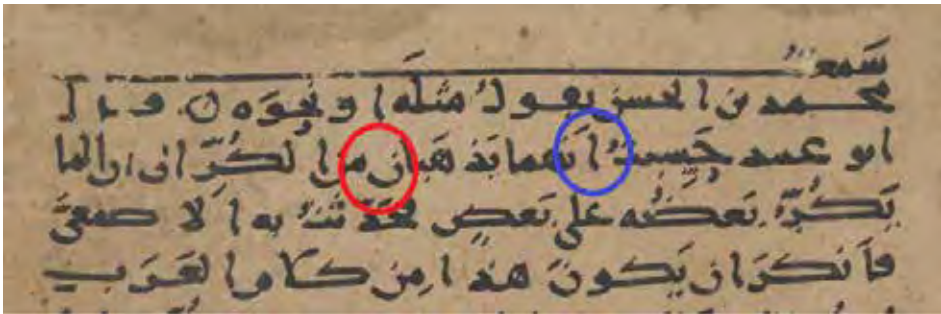 سَمعتُ
محمد بن الحسن يقولُ مثلَه او نحوَه ٥ قال
ابو عبيد حَسِبتُ اَنهما يَذهَبان من الكُرِّ الى ان الما
يَكُرُّ بَعضُه على بَعضٍ فحَدَّثتُ به الاصمعيَّ
فاَنكَرَ ان يَكونَ هذا مِن كلام العَرَب